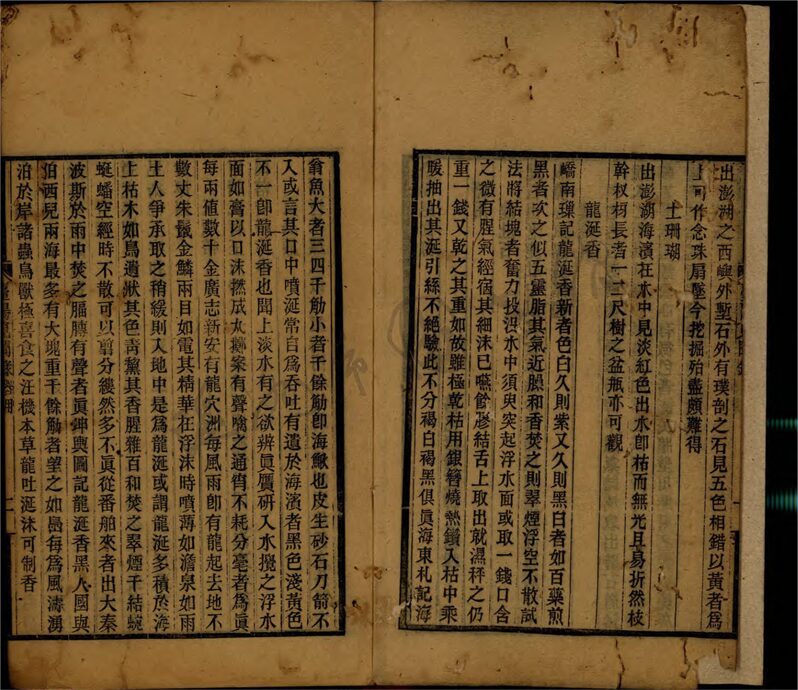 出澎湖之西嶼外塹石外有璞剖之石見五色相錯以黃者爲
上可作念珠扇墜今挖掘殆盡頗難得
土珊瑚
出澎湖海濱在水中見淡紅色出水卽枯而無光且易折然枝
幹杈枒長者一二尺樹之盆瓶亦可觀
龍涎香
嶠南瑣記龍涎香新者色白久則紫又久則黑白者如百藥煎
黑者次之似五靈脂其氣近臊和香焚之則翠煙浮空不散試
法將結塊者奮力投沒水中須臾突起浮水面或取一錢口含
之微有腥氣經宿其細沫已嚥餘膠結舌上取出就濕秤之仍
重一錢又乾之其重如故雖極乾枯用銀簪燒熱鑽入枯中乘
暖抽出其涎引絲不絕驗此不分褐白褐黑俱眞海東札記海
翁魚大者三四千觔小者千餘觔卽海鰍也皮生砂石刀箭不
入或言其口中噴涎常自爲吞吐有遺於海濱者黑色淺黃色
不一卽龍涎香也聞上淡水有之欲辨眞贋研入水攪之浮水
面如膏以口沫撚成丸擲案有聲噙之通宵不耗分毫者爲眞
每兩值數十金廣志新安有龍穴洲每風雨卽有龍起去地不
數丈朱鬛金鱗兩目如電其精華在浮沫時噴薄如澹泉如雨
土人爭承取之稍緩則入地中是爲龍涎或謂龍涎多積於海
上枯木如鳥遺狀其色靑黧其香腥雜百和焚之翠煙千結蜿
蜓蟠空經時不散可以剪分縷然多不眞從番舶來者出大秦
波斯於雨中焚之腷膊有聲者眞坤輿圖記龍涎香黑人國與
伯西兒兩海最多有大塊重千餘觔者望之如島每爲風濤湧
泊於岸諸蟲鳥獸極喜食之汪機本草龍吐涎沫可制香